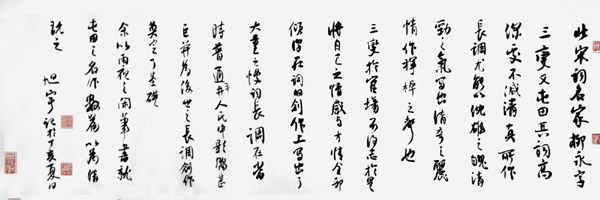 此宋词名家柳永字
三变又屯田其词高
深变不减清真所作
长调尤能以沈雄之魄清
劲之气写出清奇之丽
情作挥绰之声也
三变于官场不得志于是
将自己之情感与才情全部
倾注在词曲创作上写出了
大量之慢词长调在当
时普通平人民中影响甚
巨并为后世之长调创作
奠定了基础
余以雨夜之闲笔书就
屯田之名作数篇以为清
玩之
旭宇记于丁亥夏日